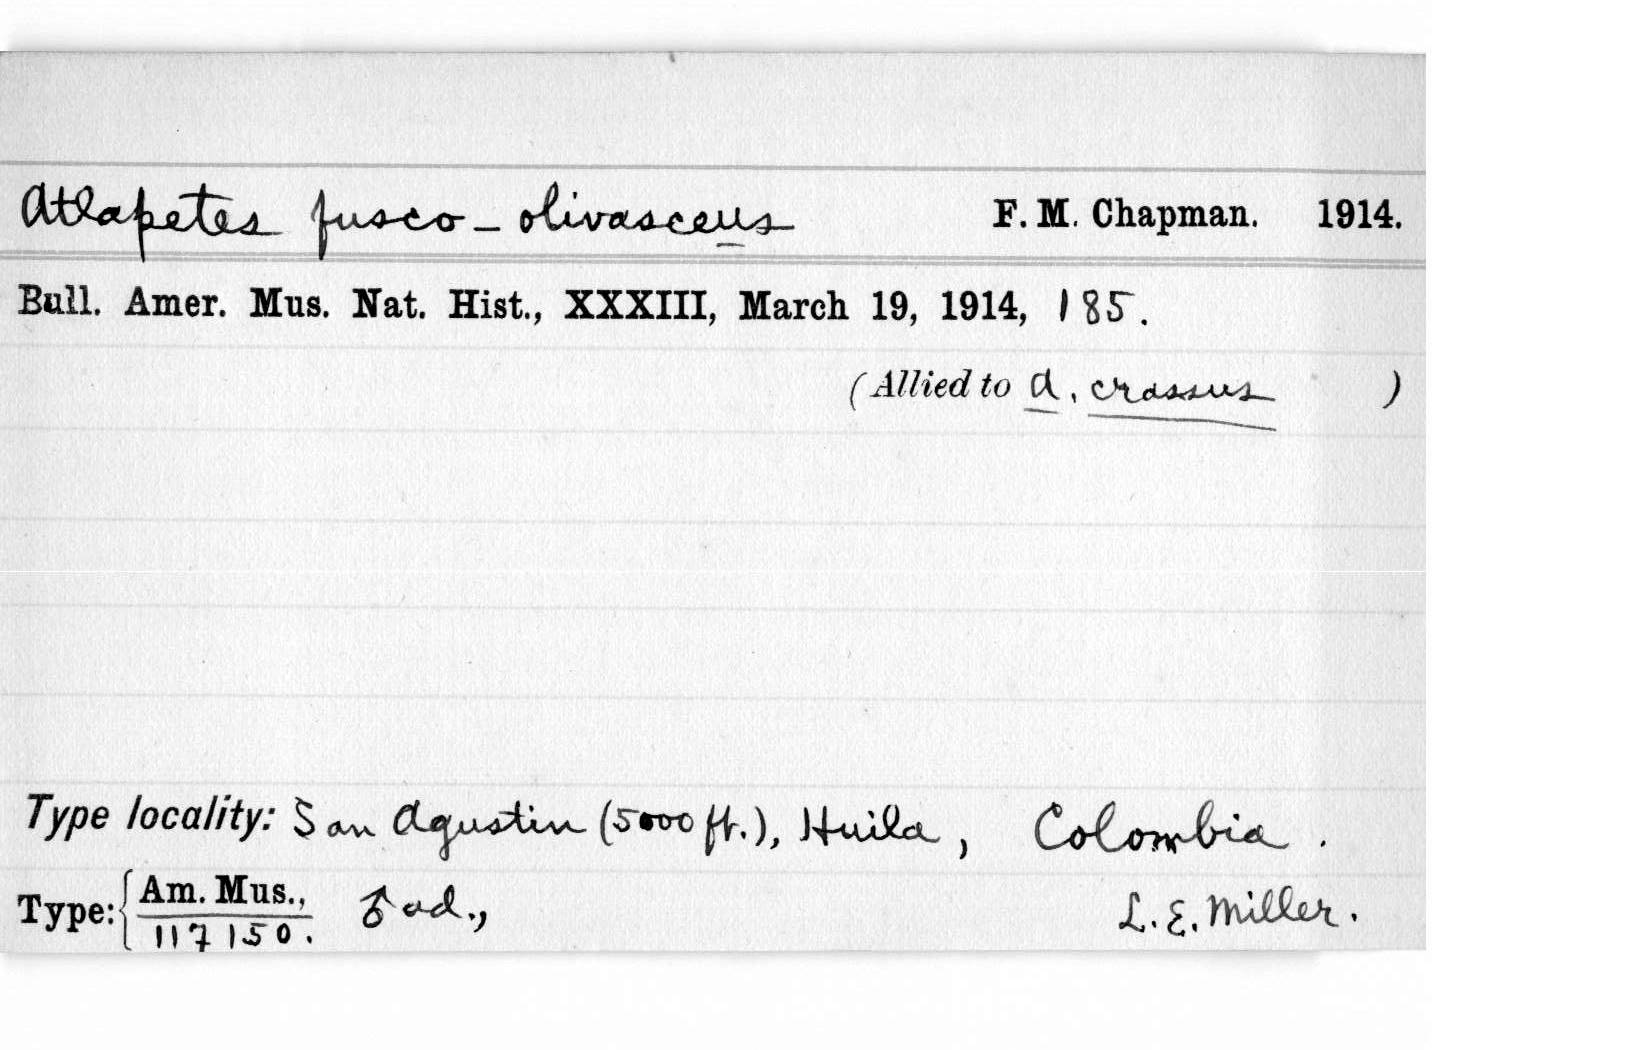 Atlapetes fusco-olivasceus F. M. Chapman. 1914.
Bull. Amer. Mus. Nat. Hist., XXXIII, March 19, 1914, 185.
(Allied to A. crassus )
Type locality: San Agustin (5000 ft.), Huila, Colombia.
Type: { Am. Mus., ♂ ad., L. E. Miller.
117150.